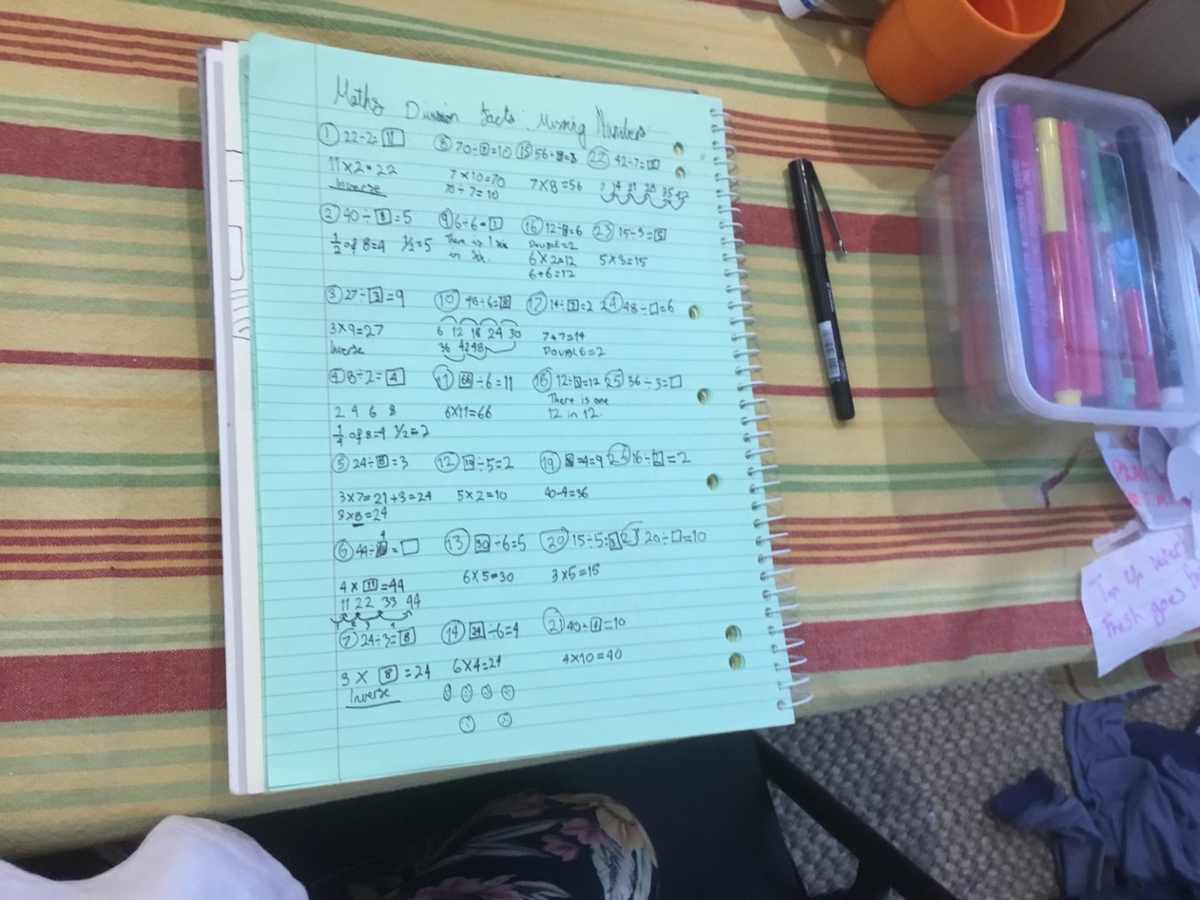 Maths Division facts: Missing Numbers
① 22÷2=11
11×2=22
Inverse
② 40÷8=5
1/2 of 8=4 1/2=5
③ 27÷3=9
3×9=27
Inverse
④ 8÷2=4
2 4 6 8
1/4 of 8=4 1/2=2
⑤ 24÷8=3
3×7=21+3=24
3×8=24
⑥ 44÷ =□
4×11=44
11 22 33 44
⑦ 24÷3=8
3 × 8 =24
Inverse
⑧ 70÷ =10
7×10=70
70÷7=10
⑨ 6÷6=1
There is 1 six
in six.
⑩ 48÷6=8
6 12 18 24 30
36 42 48
⑪ 66÷6=11
6×11=66
⑫ 10÷5=2
5×2=10
⑬ 30÷6=5
6×5=30
⑭ 24÷6=4
6×4=24
⑮ 56÷ =8
7×8=56
⑯ 12÷ =6
Double=2
6×2=12
6+6=12
⑰ 14÷7=2
7+7=14
Double=2
⑱ 12÷ =12
There is one
12 in 12.
⑲ ÷4=9
40-4=36
⑳ 15÷5=3
3×5=15
21 40÷4=10
4×10=40
22 42÷7=
7 14 21 28 35 42
23 15÷3=5
5×3=15
24 48÷□=6
25 36÷3=□
26 16÷□=2
27 20÷□=10